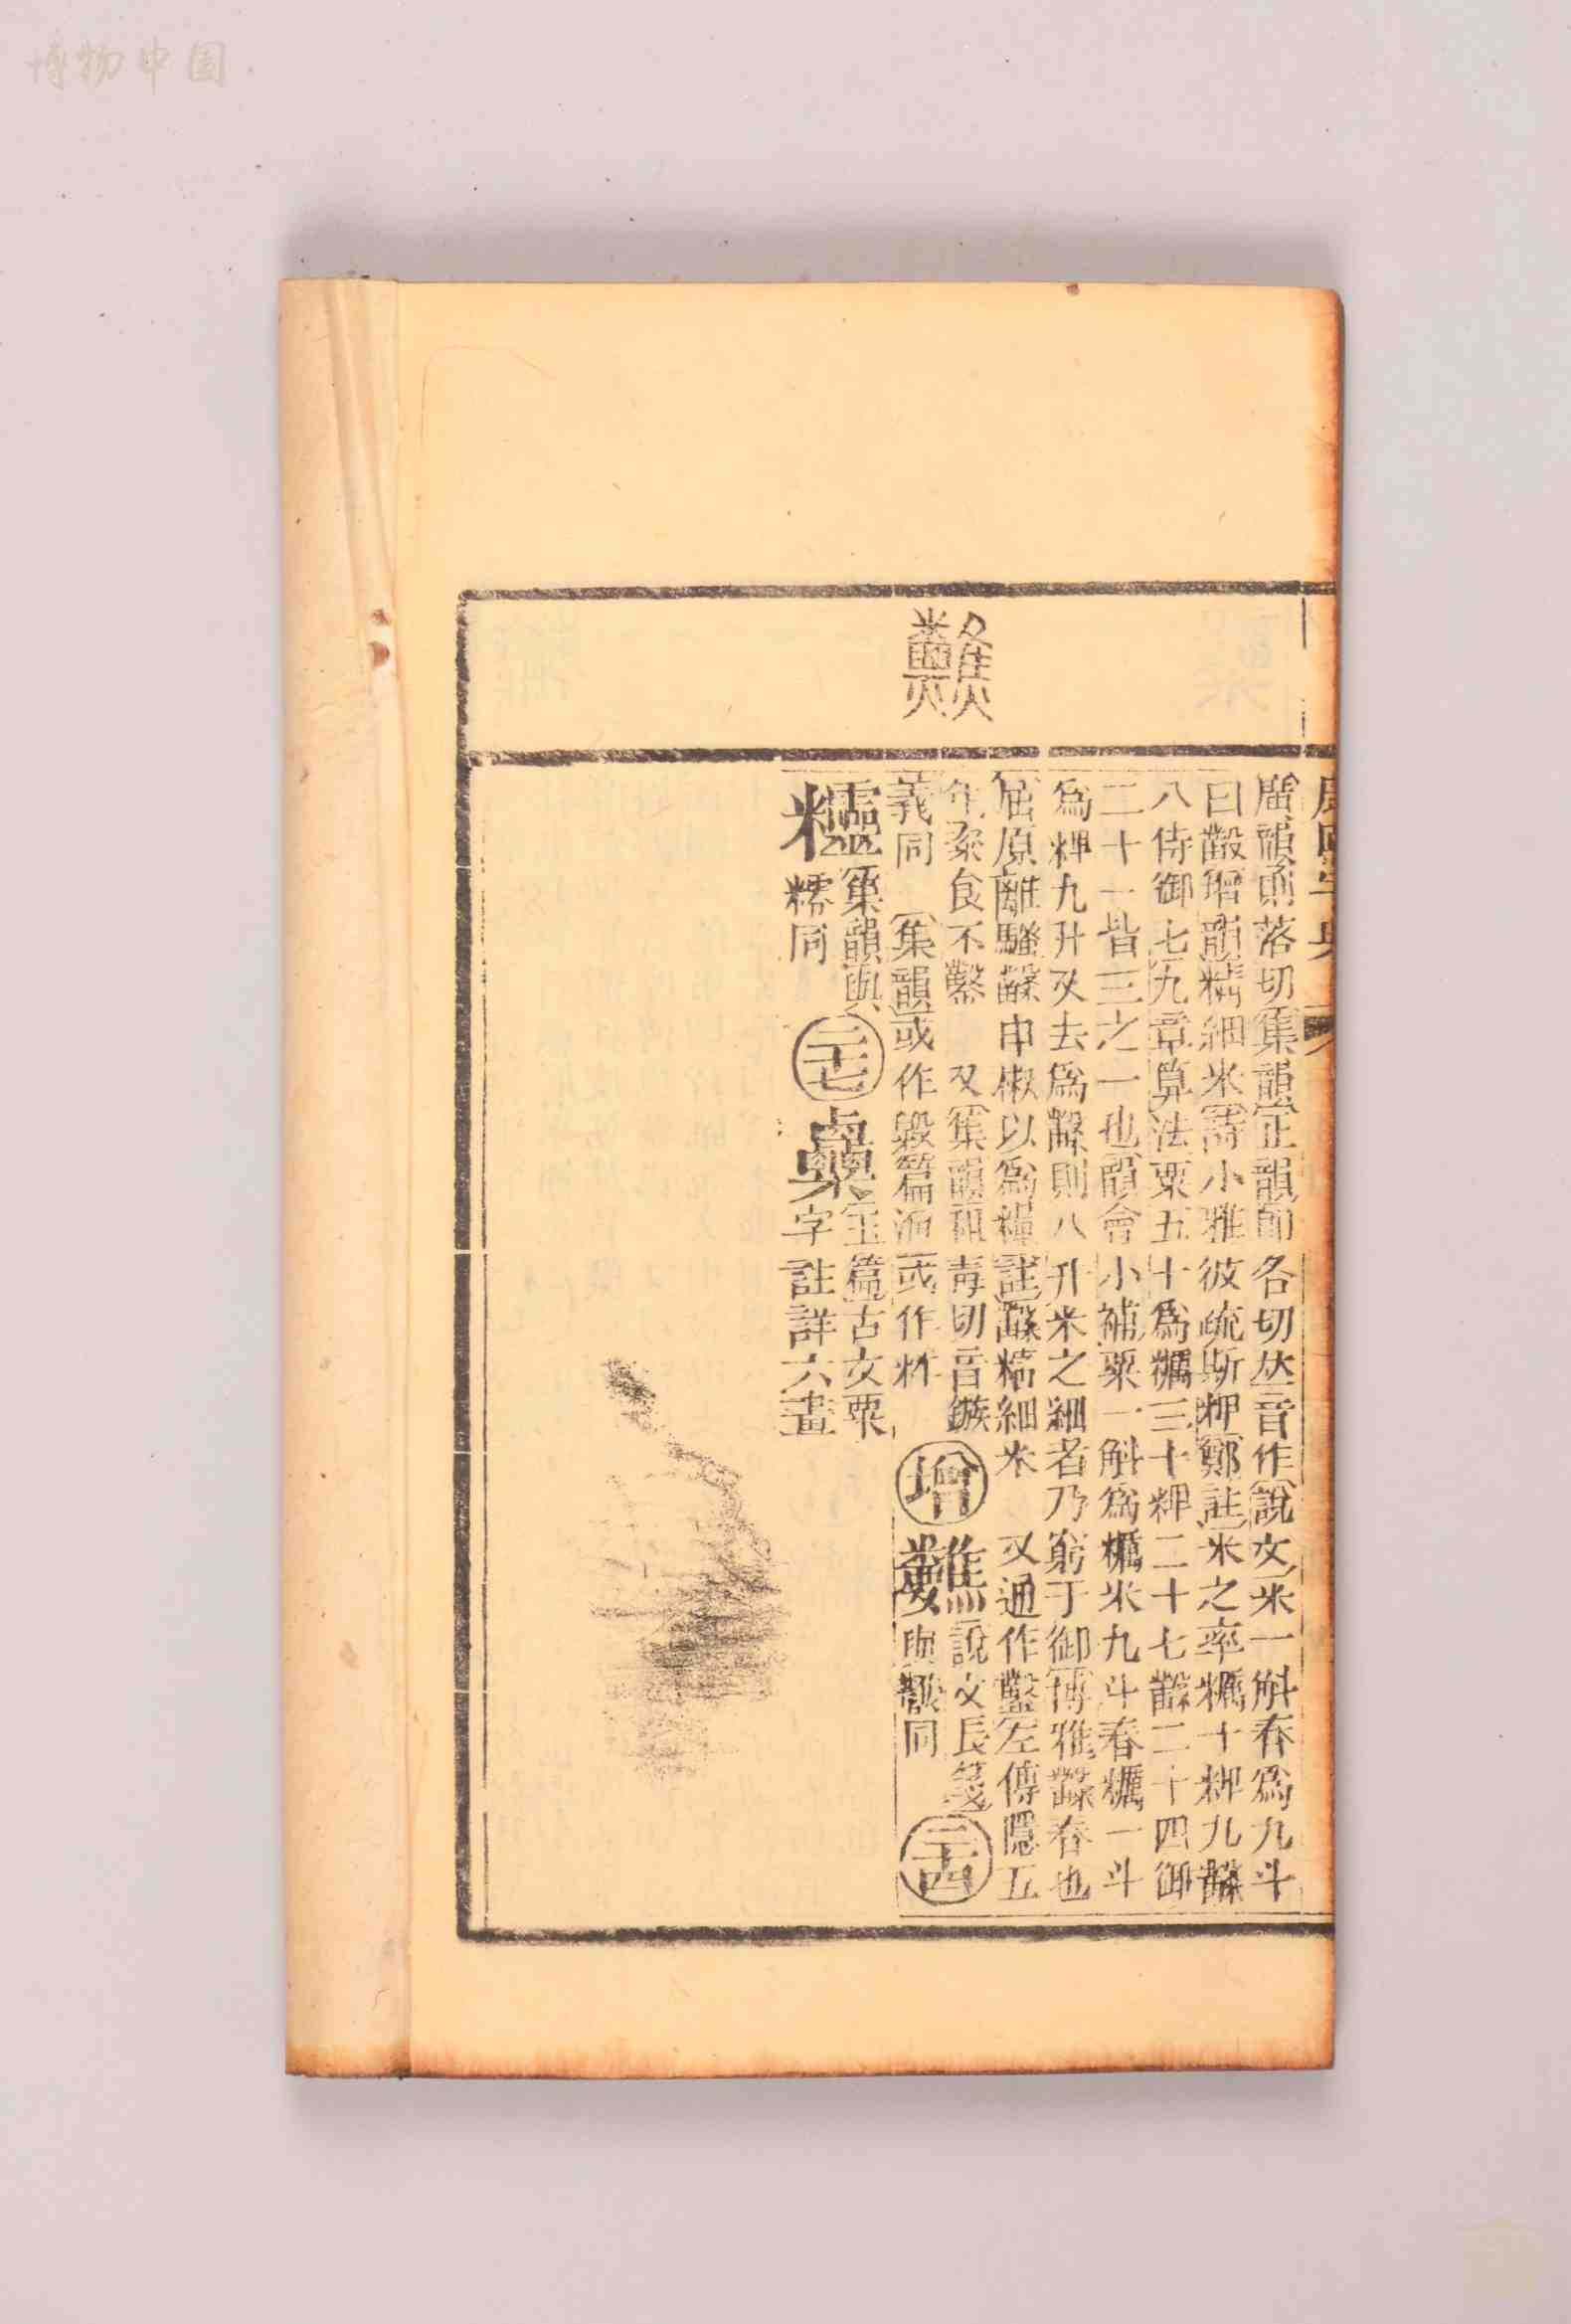 博物中国
康熙字典
廣韻則落切集韻正韻卽各切𠀤音作說文米一斛舂爲九斗
曰糳增韻精細米詩小雅彼疏斯粺鄭註米之率糲十粺九糳
八侍御七九章算法粟五十爲糲三十粺二十七糳二十四御
二十一皆三之一也韻會小補粟一斛爲糲米九斗舂糲一斗
爲粺九升又去爲糳則八升米之細者乃窮于御博雅糳舂也
屈原離騷糳申椒以爲糧註糳精細米 又通作鑿左傳隱五
年粢食不鑿 又集韻 靑切音鏃
義同 集韻或作毇篇海或作粨 增
說文長箋
與 同 二十四
集韻與
糯同 二十七
玉篇古文粟
字註詳六畫